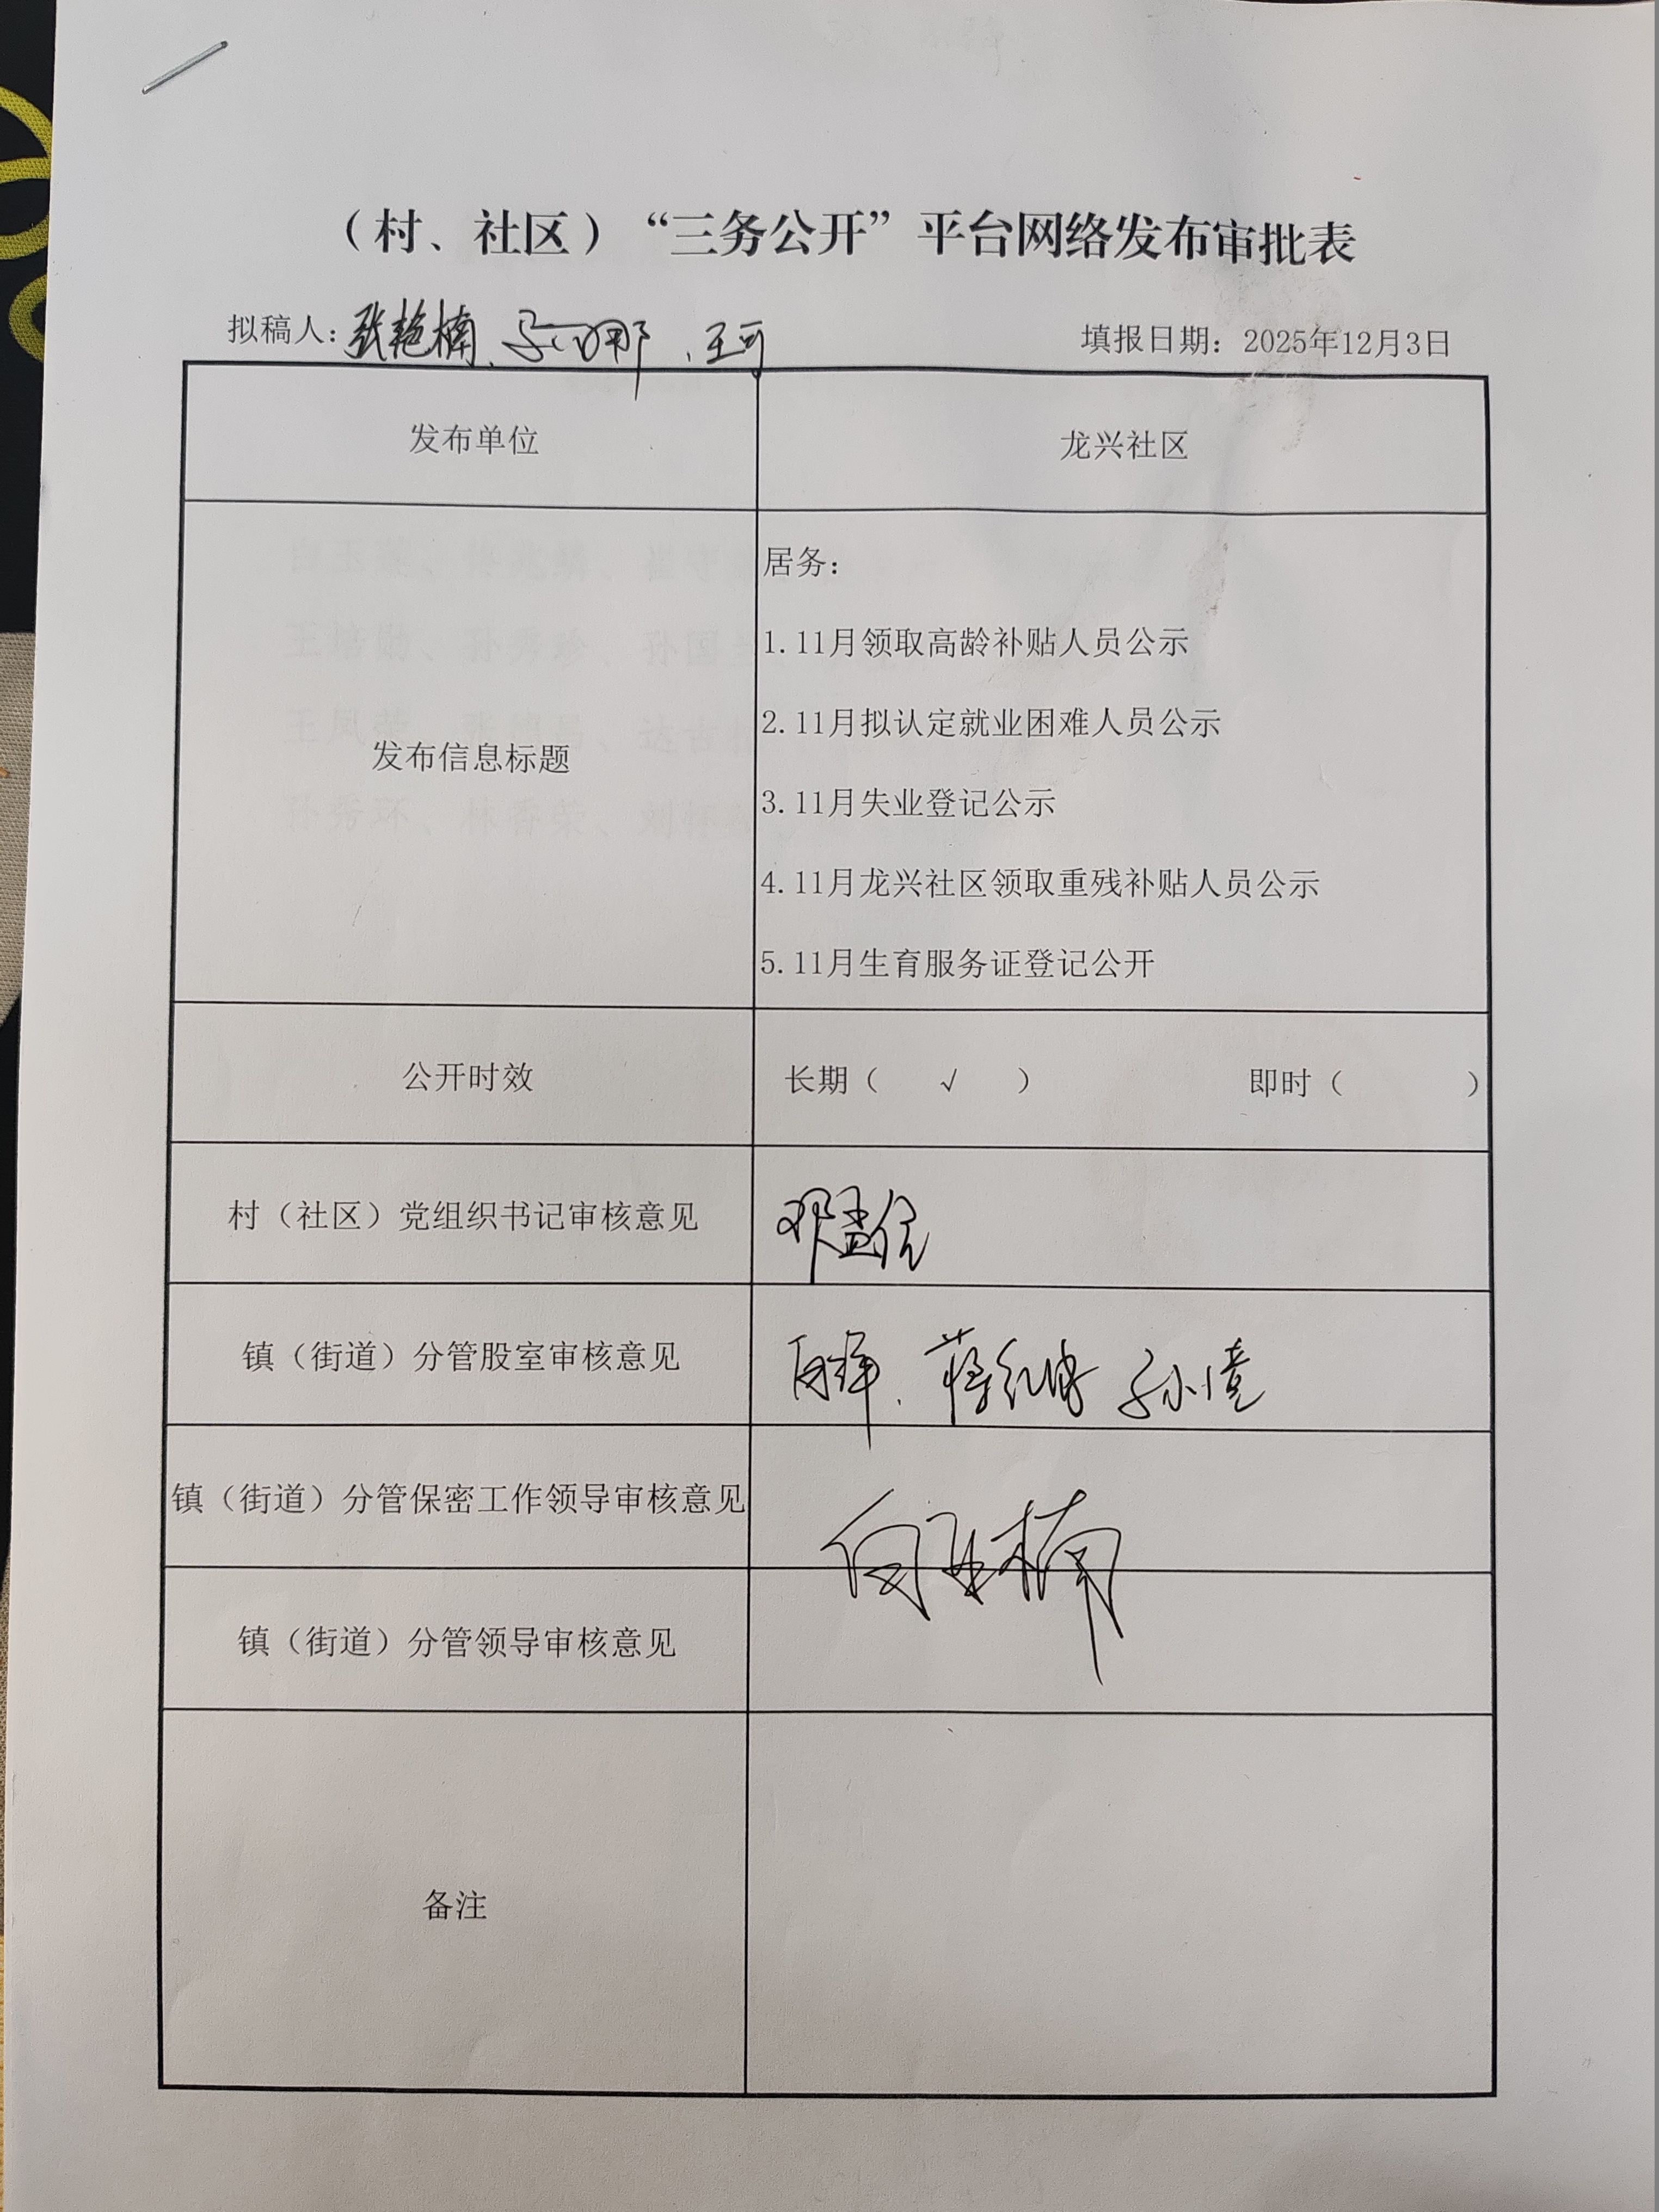 （村、社区）“三务公开”平台网络发布审批表
拟稿人：张艳楠、 、王可 填报日期：2025年12月3日
发布单位 龙兴社区
发布信息标题
居务：
1.11月领取高龄补贴人员公示
2.11月拟认定就业困难人员公示
3.11月失业登记公示
4.11月龙兴社区领取重残补贴人员公示
5.11月生育服务证登记公开
公开时效 长期（ √ ） 即时（ ）
村（社区）党组织书记审核意见
镇（街道）分管股室审核意见
镇（街道）分管保密工作领导审核意见
镇（街道）分管领导审核意见
备注